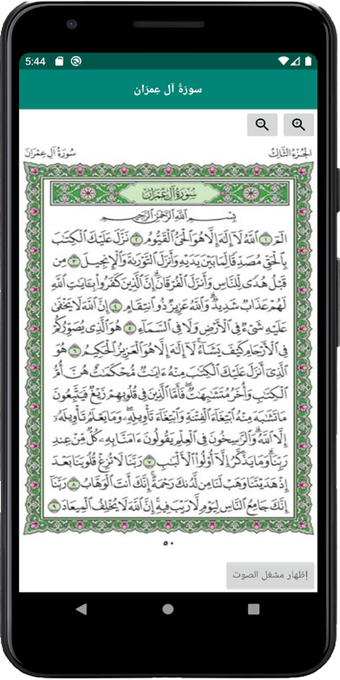 5:44
سورَة آل عِمرَان
سُورَةُ آلِ عِمْرَانَ
الجُزْءُ الثَّالِثُ
سُورَةُ آلِ عِمْرَانَ
بِسْمِ اللَّهِ الرَّحْمَٰنِ الرَّحِيمِ
الٓمٓ ١ اللَّهُ لَآ إِلَٰهَ إِلَّا هُوَ الْحَيُّ الْقَيُّومُ ٢ نَزَّلَ عَلَيْكَ الْكِتَٰبَ
بِالْحَقِّ مُصَدِّقًا لِّمَا بَيْنَ يَدَيْهِ وَأَنزَلَ التَّوْرَىٰةَ وَالْإِنجِيلَ ٣ مِن
قَبْلُ هُدًى لِّلنَّاسِ وَأَنزَلَ الْفُرْقَانَ إِنَّ الَّذِينَ كَفَرُوا بِـَٔايَٰتِ اللَّهِ
لَهُمْ عَذَابٌ شَدِيدٌ وَاللَّهُ عَزِيزٌ ذُو انتِقَامٍ ٤ إِنَّ اللَّهَ لَا يَخْفَىٰ
عَلَيْهِ شَىْءٌ فِى الْأَرْضِ وَلَا فِى السَّمَآءِ ٥ هُوَ الَّذِى يُصَوِّرُكُمْ
فِى الْأَرْحَامِ كَيْفَ يَشَآءُ لَآ إِلَٰهَ إِلَّا هُوَ الْعَزِيزُ الْحَكِيمُ ٦ هُوَ
الَّذِىٓ أَنزَلَ عَلَيْكَ الْكِتَٰبَ مِنْهُ ءَايَٰتٌ مُّحْكَمَٰتٌ هُنَّ أُمُّ
الْكِتَٰبِ وَأُخَرُ مُتَشَٰبِهَٰتٌ فَأَمَّا الَّذِينَ فِى قُلُوبِهِمْ زَيْغٌ فَيَتَّبِعُونَ
مَا تَشَٰبَهَ مِنْهُ ابْتِغَآءَ الْفِتْنَةِ وَابْتِغَآءَ تَأْوِيلِهِ وَمَا يَعْلَمُ تَأْوِيلَهُٓ
إِلَّا اللَّهُ وَالرَّٰسِخُونَ فِى الْعِلْمِ يَقُولُونَ ءَامَنَّا بِهِ كُلٌّ مِّنْ عِندِ
رَبِّنَا وَمَا يَذَّكَّرُ إِلَّآ أُولُوا الْأَلْبَٰبِ ٧ رَبَّنَا لَا تُزِغْ قُلُوبَنَا بَعْدَ
إِذْ هَدَيْتَنَا وَهَبْ لَنَا مِن لَّدُنكَ رَحْمَةً إِنَّكَ أَنتَ الْوَهَّابُ ٨ رَبَّنَآ
إِنَّكَ جَامِعُ النَّاسِ لِيَوْمٍ لَّا رَيْبَ فِيهِ إِنَّ اللَّهَ لَا يُخْلِفُ الْمِيعَادَ ٩
٥٠
إظهار مشغل الصوت